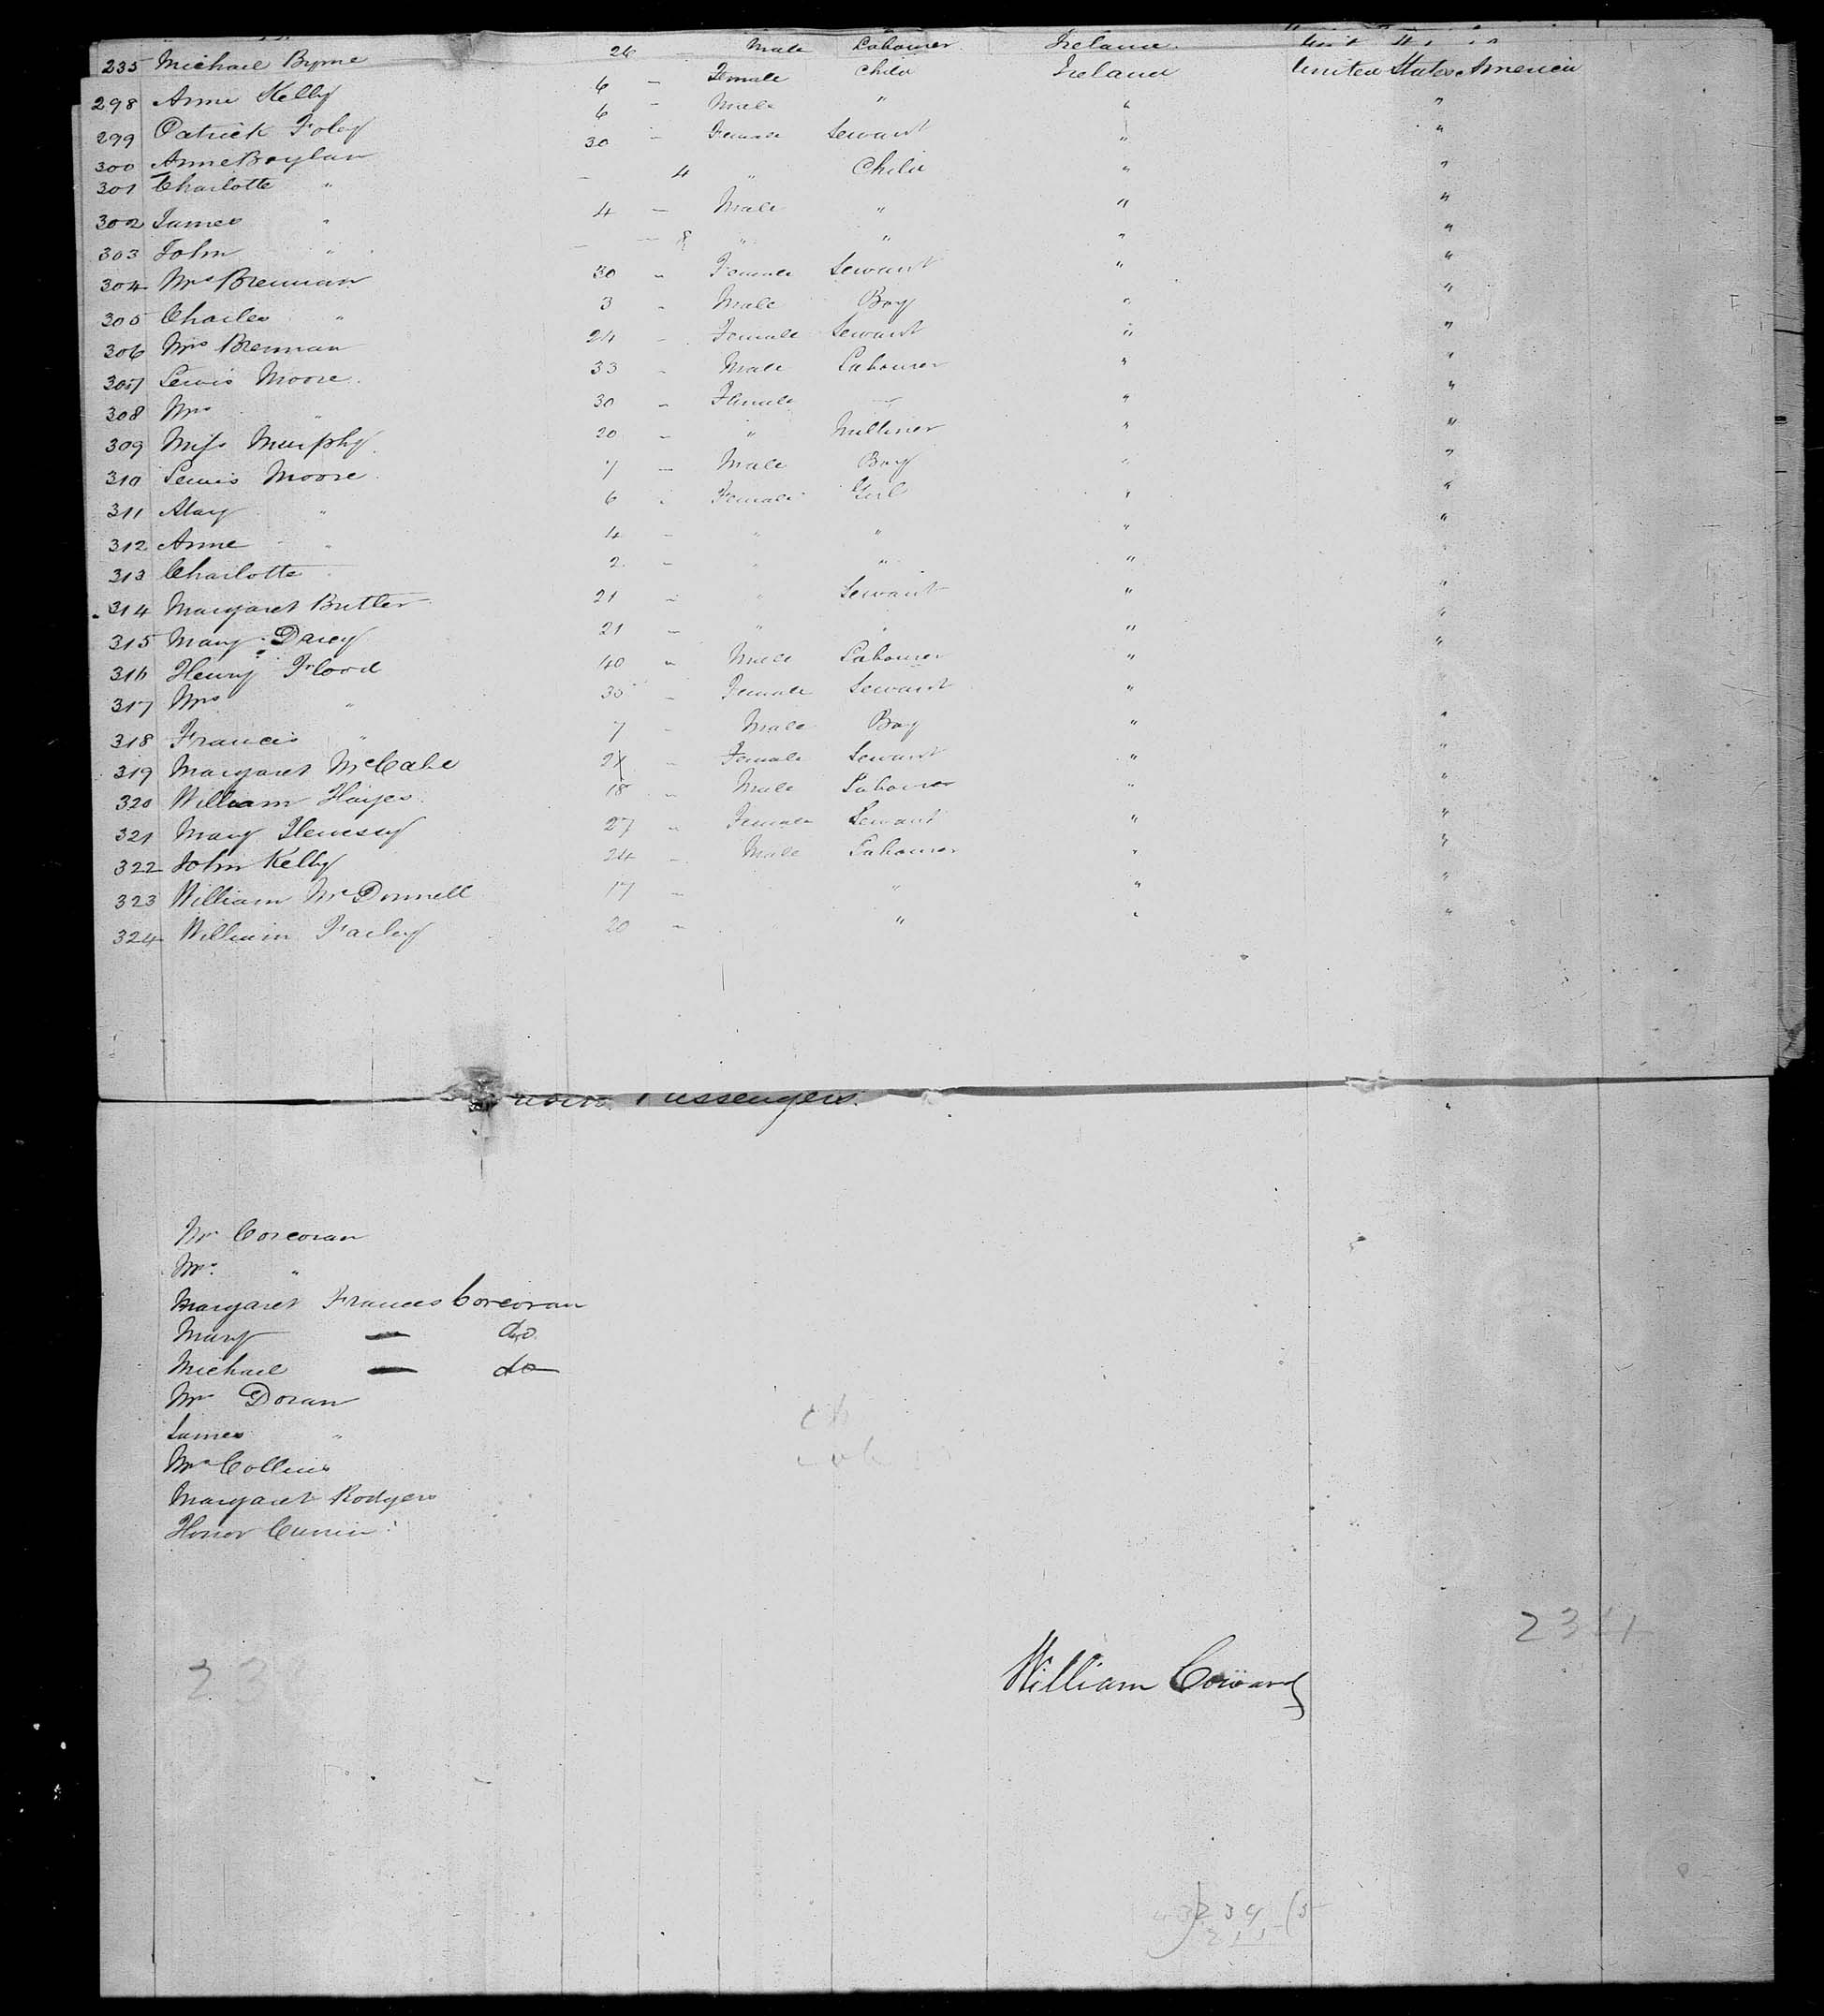 235 Michael Byrne 26 Male Labourer Ireland
298 Anne Kelly 6 - Female Child Ireland United States America
299 Patrick Foley 6 - Male " " "
300 Anne Boylan 30 - Female Servant " "
301 Charlotte " - 4 " Child " "
302 James " 4 - Male " " "
303 John " - - 8 " " " "
304 Mrs Brennan 30 - Female Servant " "
305 Charles " 3 - Male Boy " "
306 Mrs Brennan 24 - Female Servant " "
307 Lewis Moore 33 - Male Labourer " "
308 Mrs " 30 - Female " "
309 Miss Murphy 20 - " Milliner " "
310 Lewis Moore 7 - Male Boy " "
311 Mary " 6 - Female Girl " "
312 Anne " 4 - " " " "
313 Charlotte 2 - " " "
314 Margaret Butler 21 - " Servant " "
315 Mary Darcy 21 - " " " "
316 Henry Flood 40 - Male Labourer " "
317 Mrs " 35 - Female Servant "
318 Francis " 7 - Male Boy " "
319 Margaret McCabe - Female Servant " "
320 William Hayes 18 - Male Labourer " "
321 Mary Henessy 27 - Female Servant " "
322 John Kelly 24 - Male Labourer " "
323 William McDonnell 17 - " " "
324 William Farley 20 - " " "
Passengers.
Mr Corcoran
Mrs "
Margaret Frances Corcoran
Mary — do
Michael — do
Mrs Doran
James "
Mrs Collins
Margaret Rodgers
Honor
William Coward
234